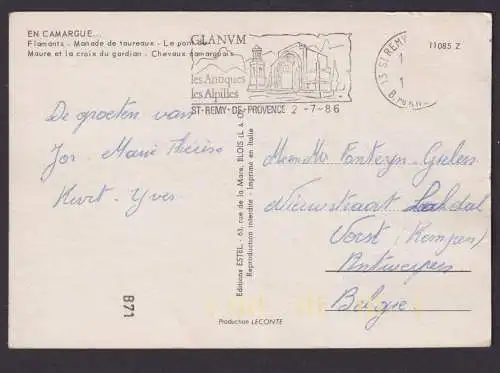 EN CAMARGUE...
Flamants - Manade de taureaux - Le pont de
Maure et la croix du gardian - Chevaux camarguais
GLANVM
les Antiques
les Alpilles
ST-REMY-DE-PROVENCE 2-7-86
13 ST REMY
11085 Z
De groeten van
Jos - Marie Thérèse
Kurt - Yves
Editions ESTEL - 63, rue de la Mare, BLOIS (L. & C.)
Reproduction interdite - Imprimé en Italie
Mr Fonteyn - Gielens
Nieuwstraat
Vorst (Kempen)
Antwerpen
Belgie
871
Production LECONTE